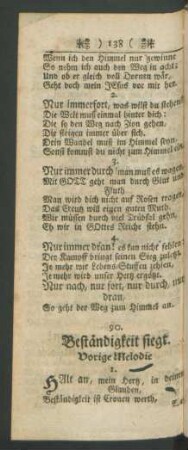 ) 138 (
Wenn ich den Himmel nur gewinne
So nehm ich auch den Weg in acht:
Und ob er gleich voll Dornen wär,
Geht doch mein JEsus vor mir her.
2.
Nur immerfort, was wilst du stehen
Die Welt muß einmal hinter dich:
Die so den Weg nach Zion gehen,
Die steigen immer über sich.
Dein Wandel muß im Himmel seyn,
Sonst kommst du nicht zum Himmel ein.
3.
Nur immer durch! man muß es wagen,
Mit GOTT geht man durch Glut und
Fluth
Man wird dich nicht auf Rosen tragen,
Das Creutz will eigen guten Muth.
Wir müssen durch viel Trübsal gehn,
Eh wir in GOttes Reiche stehn.
4.
Nur immer dran! es kan nicht fehlen
Der Kampf bringt seinen Sieg
Je mehr wir Lebens-Stuffen zehlen,
Je mehr wird unser Hertz ergötzt.
Nur nach, nur fort, nur durch, nur
dran,
So geht der Weg zum Himmel an.
90.
Beständigkeit siegt.
Vorige Melodie
1.
Halt an, mein Hertz, in deinem
Glauben,
Beständigkeit ist Cronen werth,